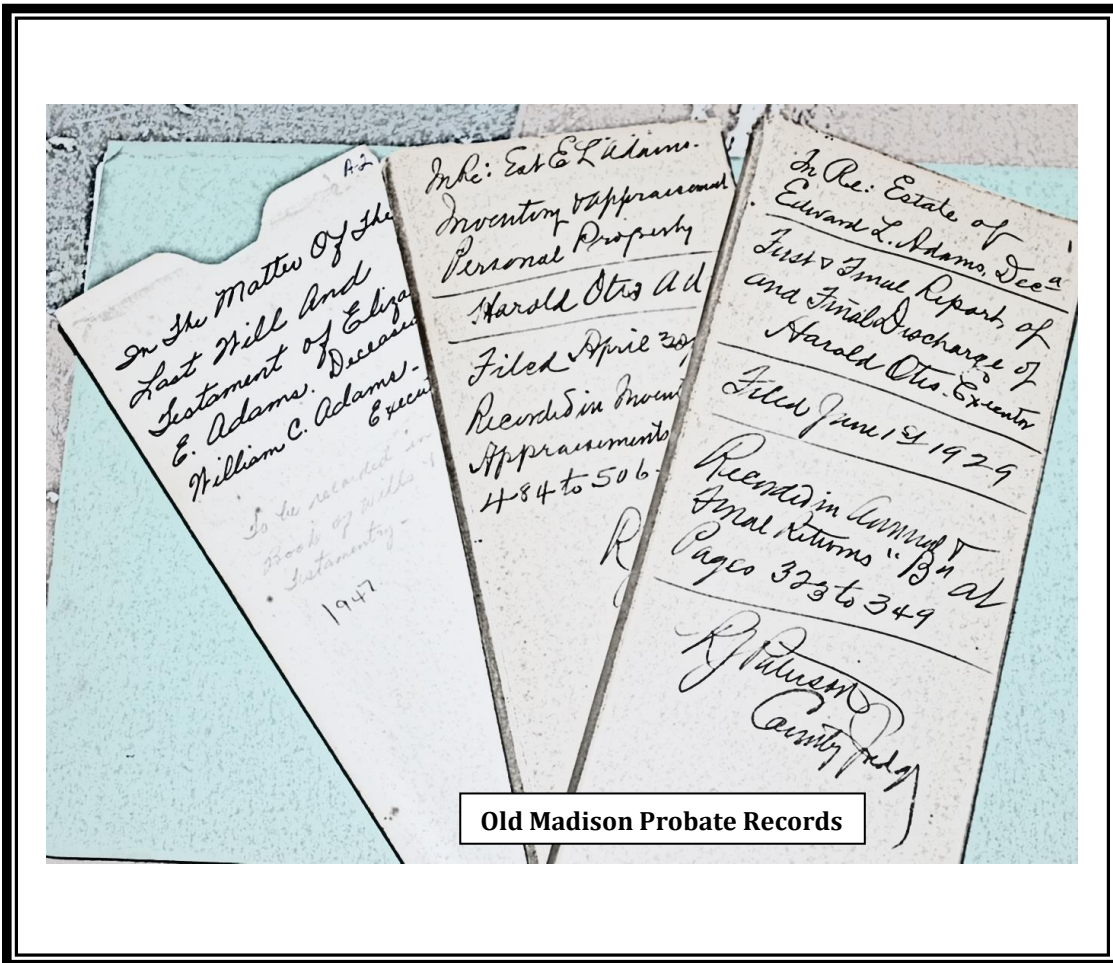 A-2
In The Matter Of The
Last Will And
Testament of Eliza
E. Adams. Deceased
William C. Adams.
Execut
To be recorded in
Book of Wills
Testamentry-
1947
In Re: Est E L Adams.
Inventory & Appraisment
Personal Property
Harold Otis Ad
Filed April 30
Recorded in Inven
Appraisements
484 to 506.
In Re: Estate of
Edward L. Adams, Decd
First & Final Reports of
and Final Discharge of
Harold Otis. Executor
Filed June 1st 1929
Recorded in Annual &
Final Returns "B" at
Pages 323 to 349
County Judg
Old Madison Probate Records